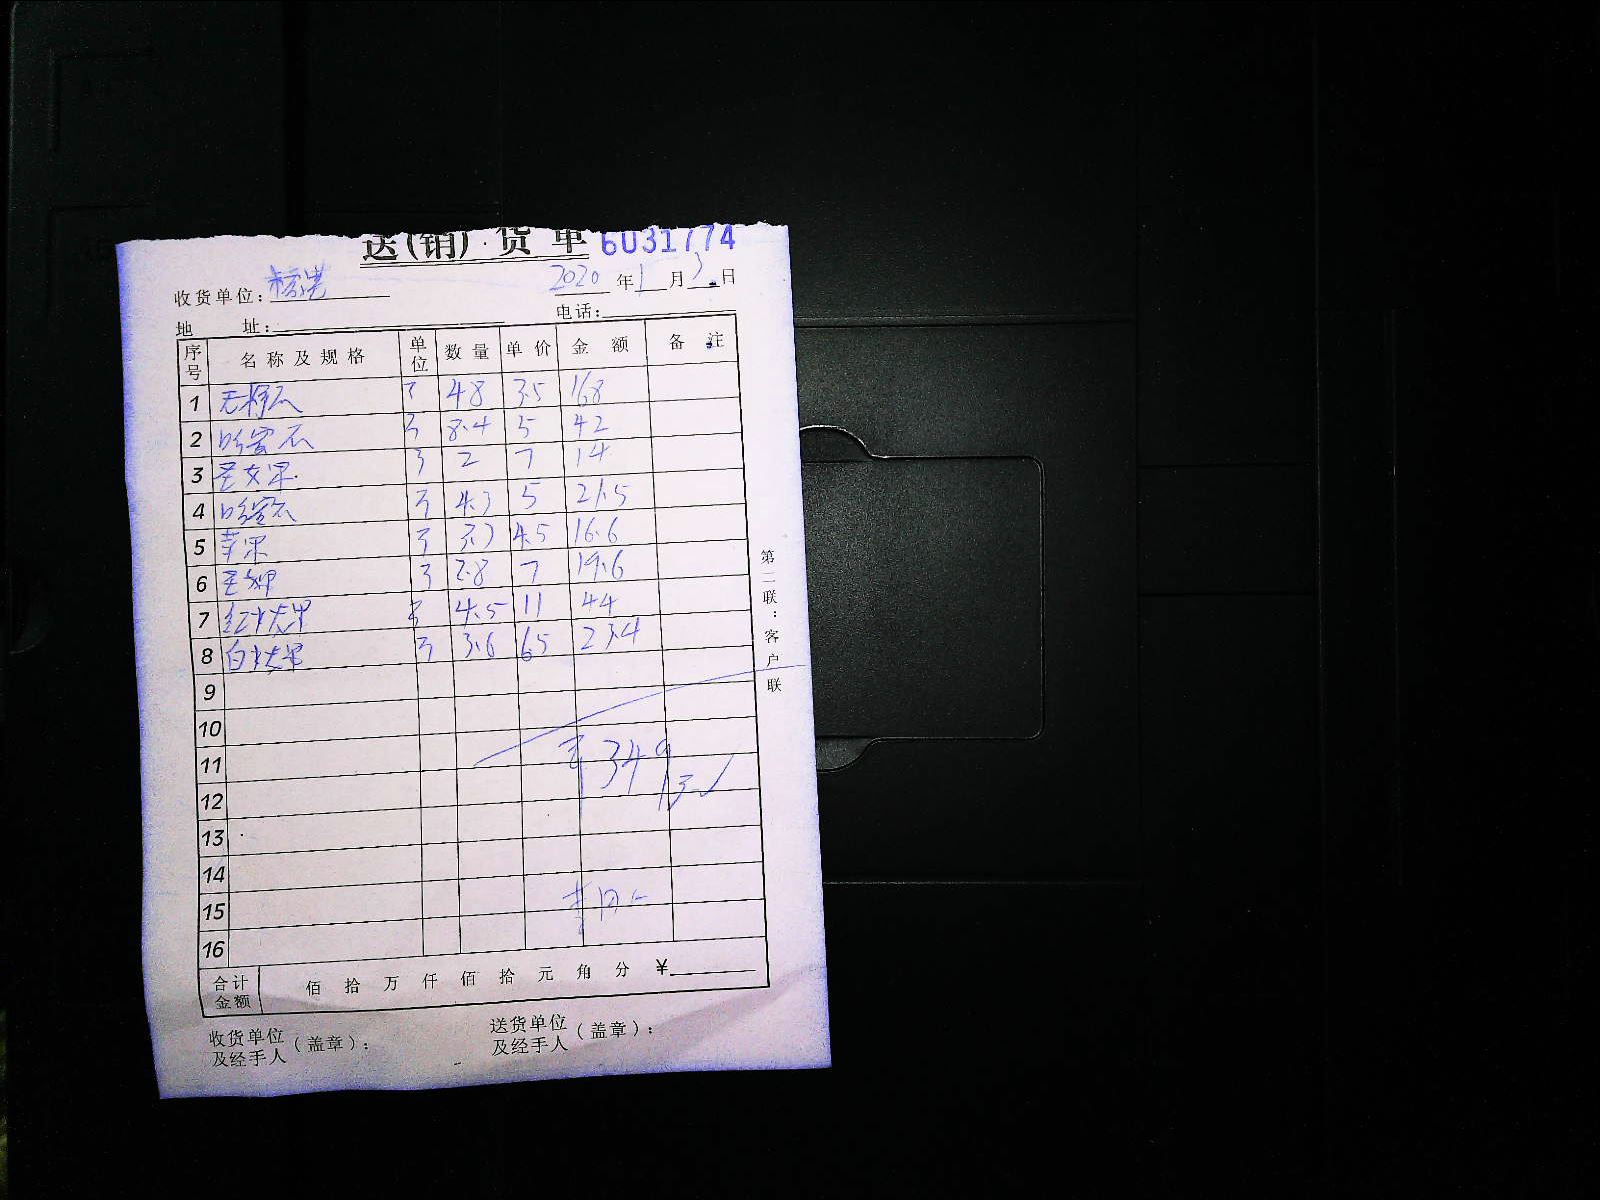 送(销)货单 6031774
收货单位: 2020 年 1 月 3 日
地 址: 电话:
序号 名称及规格 单位 数量 单价 金额 备注
1 48 3.5 168
2 哈密瓜 8.4 5 42
3 圣女果 2 7 14
4 哈密瓜 4.3 5 21.5
5 苹果 3.7 4.5 16.6
6 2.8 7 19.6
7 红 4.5 11 44
8 白 3.6 6.5 23.4
9
10
11 349
12
13
14
15
16
合计金额 佰 拾 万 仟 佰 拾 元 角 分 ¥
收货单位及经手人(盖章): 送货单位及经手人(盖章):
第二联:客户联